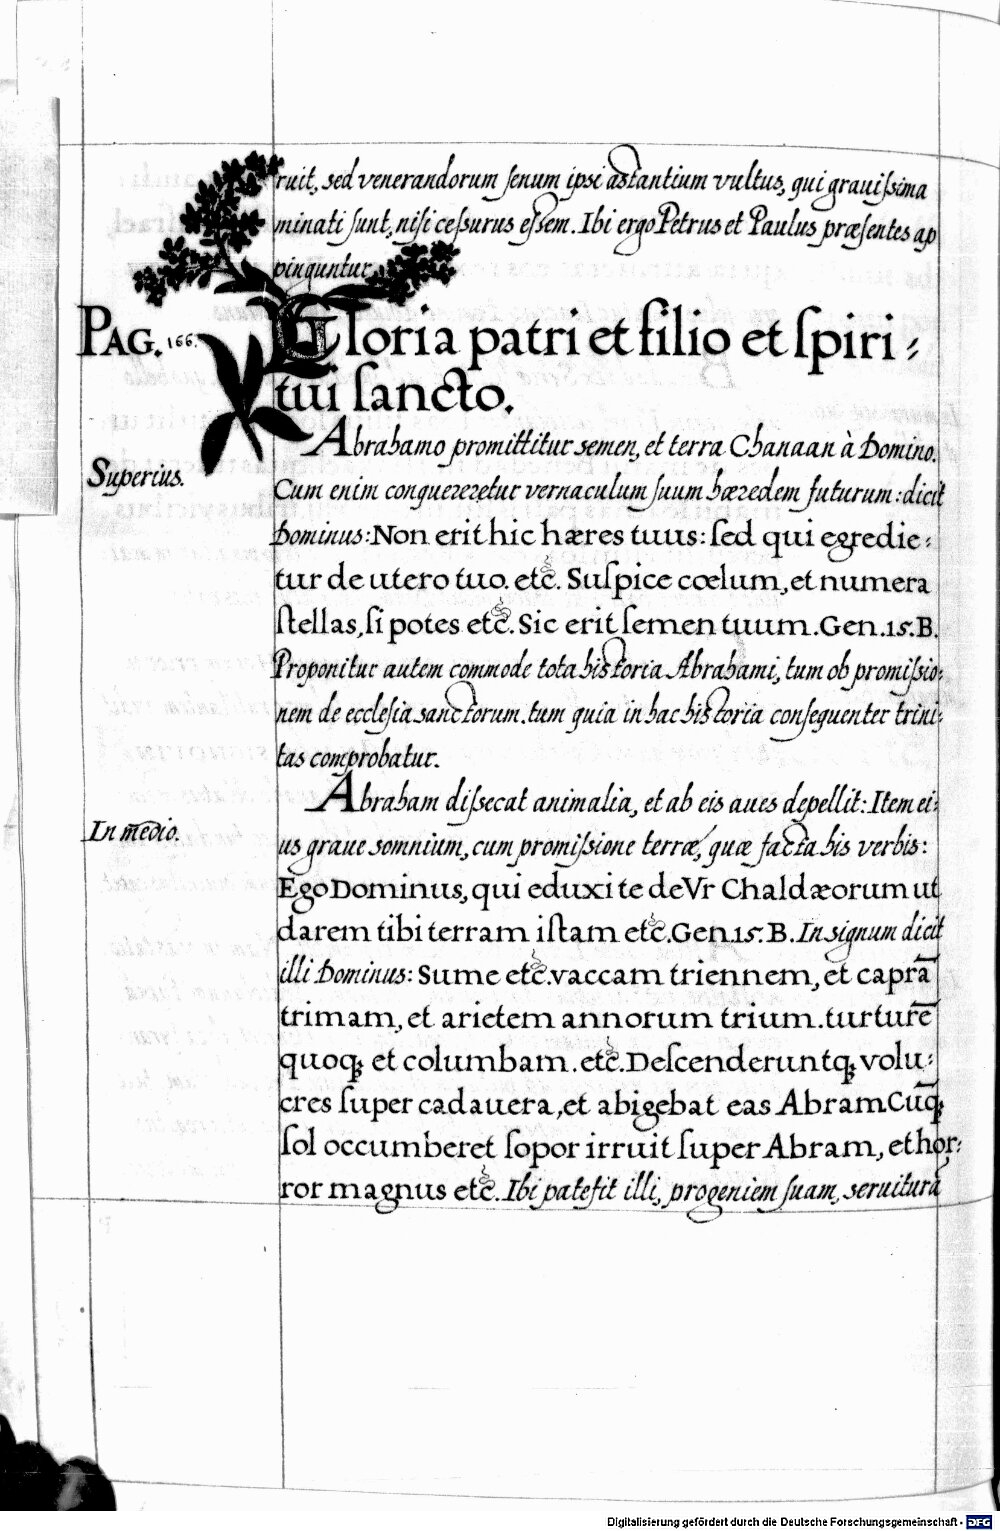 ruit, sed venerandorum ſenum ipsi astantium vultus, qui grauiſsima
minati ſunt, niſi ceſsurus eſsem. Ibi ergo Petrus et Paulus præſentes ap
pinguntur.
PAG. 166.
Gloria patri et filio et ſpiri-
tui ſancto.
Abrahamo promittitur semen, et terra Chanaan à Domino.
Superius.
Cum enim conquereretur vernaculum ſuum hæredem futurum: dicit
Dominus: Non erit hic hæres tuus: ſed qui egredie-
tur de utero tuo. etc̃. Suſpice cœlum, et numera
ſtellas, ſi potes etc̃. Sic erit ſemen tuum. Gen. 15. B.
Proponitur autem commode tota historia Abrahami, tum ob promiſsio-
nem de eccleſia sanctorum. tum quia in hac historia conſequenter trini-
tas comprobatur.
Abraham diſsecat animalia, et ab eis aues depellit: Item ei-
In medio.
us graue somnium, cum promiſsione terræ, quæ facta his verbis:
Ego Dominus, qui eduxi te de Vr Chaldæorum ut
darem tibi terram iſtam etc̃. Gen. 15. B. In signum dicit
illi Dominus: Sume etc̃. vaccam triennem, et caprā
trimam, et arietem annorum trium. turturē
quoq; et columbam. etc̃. Deſcenderuntq; volu-
cres ſuper cadauera, et abigebat eas Abram. Cūq;
ſol occumberet ſopor irruit ſuper Abram, et hor-
ror magnus etc̃. Ibi patefit illi, progeniem ſuam, seruiturā
Digitalisierung gefördert durch die Deutsche Forschungsgemeinschaft - DFG